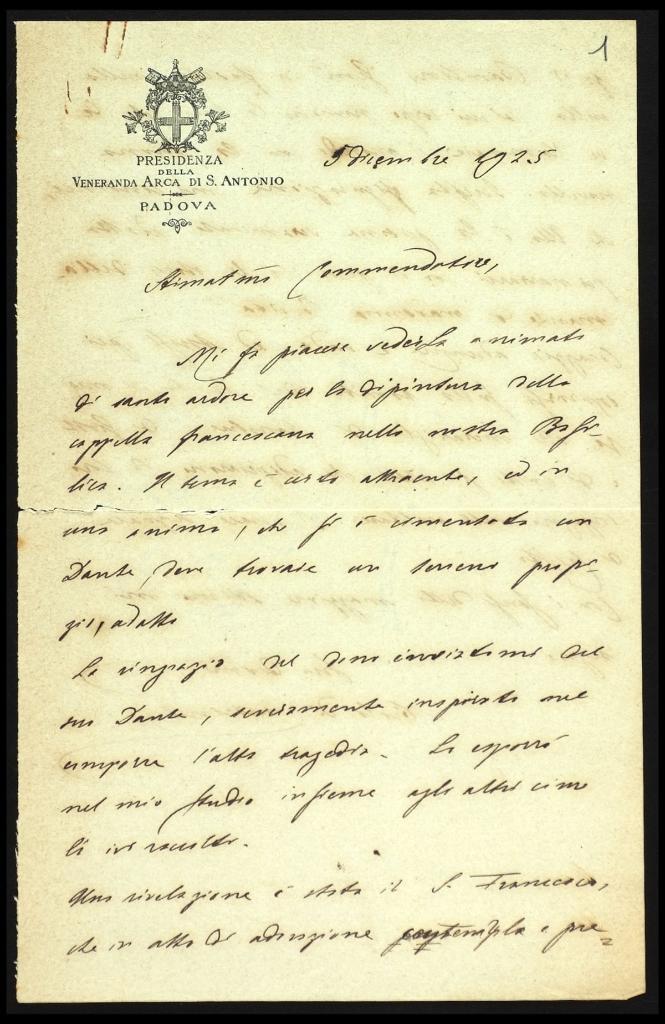 1
PRESIDENZA
DELLA
VENERANDA ARCA DI S. ANTONIO
PADOVA
5 dicembre 1925
Stimatmo Commendatore,
Mi fa piacere vederLa animato
di santo ardore per la dipintura della
cappella francescana nella nostra Basi-
lica. Il tema è certo attraente, ed in
una anima, che si è cimentata con
Dante, deve trovare un terreno propi-
zio, adatto
La ringrazio del dono inviatomi del
suo Dante, veramente inspirato nel
comporre l'alta tragedia. Lo esporrò
nel mio studio insieme agli altri cime
lî ivi raccolti.
Una rivelazione è stato il S. Francesco,
che in atto di adorazione contempla e pre=